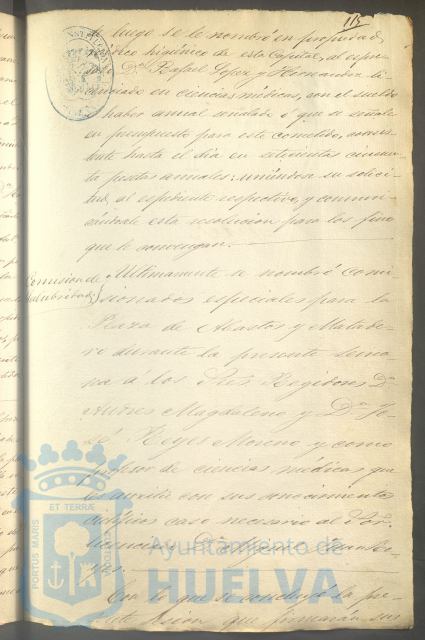 115
luego se le nombró en propiedad
médico higiénico de esta Capital, al espre-
Dn. Rafael Lopez y Hernandez li-
cenciado en ciencias médicas, con el sueldo
haber annual señalado ó que se señale
en presupuesto para este cometido, consis-
tente hasta el dia en setecientas cincuen-
ta pesetas annuales; uniéndose su solici-
tud, al espediente respectivo, y comuni-
cándosele esta resolucion para los fines
que le convengan.
Comision de
salubridad
Ultimamente se nombró comi-
sionados especiales para la
Plaza de Abastos y Matade-
ro durante la presente sema-
na á los Sres Regidores Dn.
Andres Magdaleno y Dn. Jo-
sé Reyes Moreno y como
profesor de ciencias médicas que
les ausilie con sus conocimientos
caso necesario al
Con lo que se concluyó la pre-
sente que firmarán sus
PORTUS MARIS
ET TERRÆ
Ayuntamiento de
HUELVA